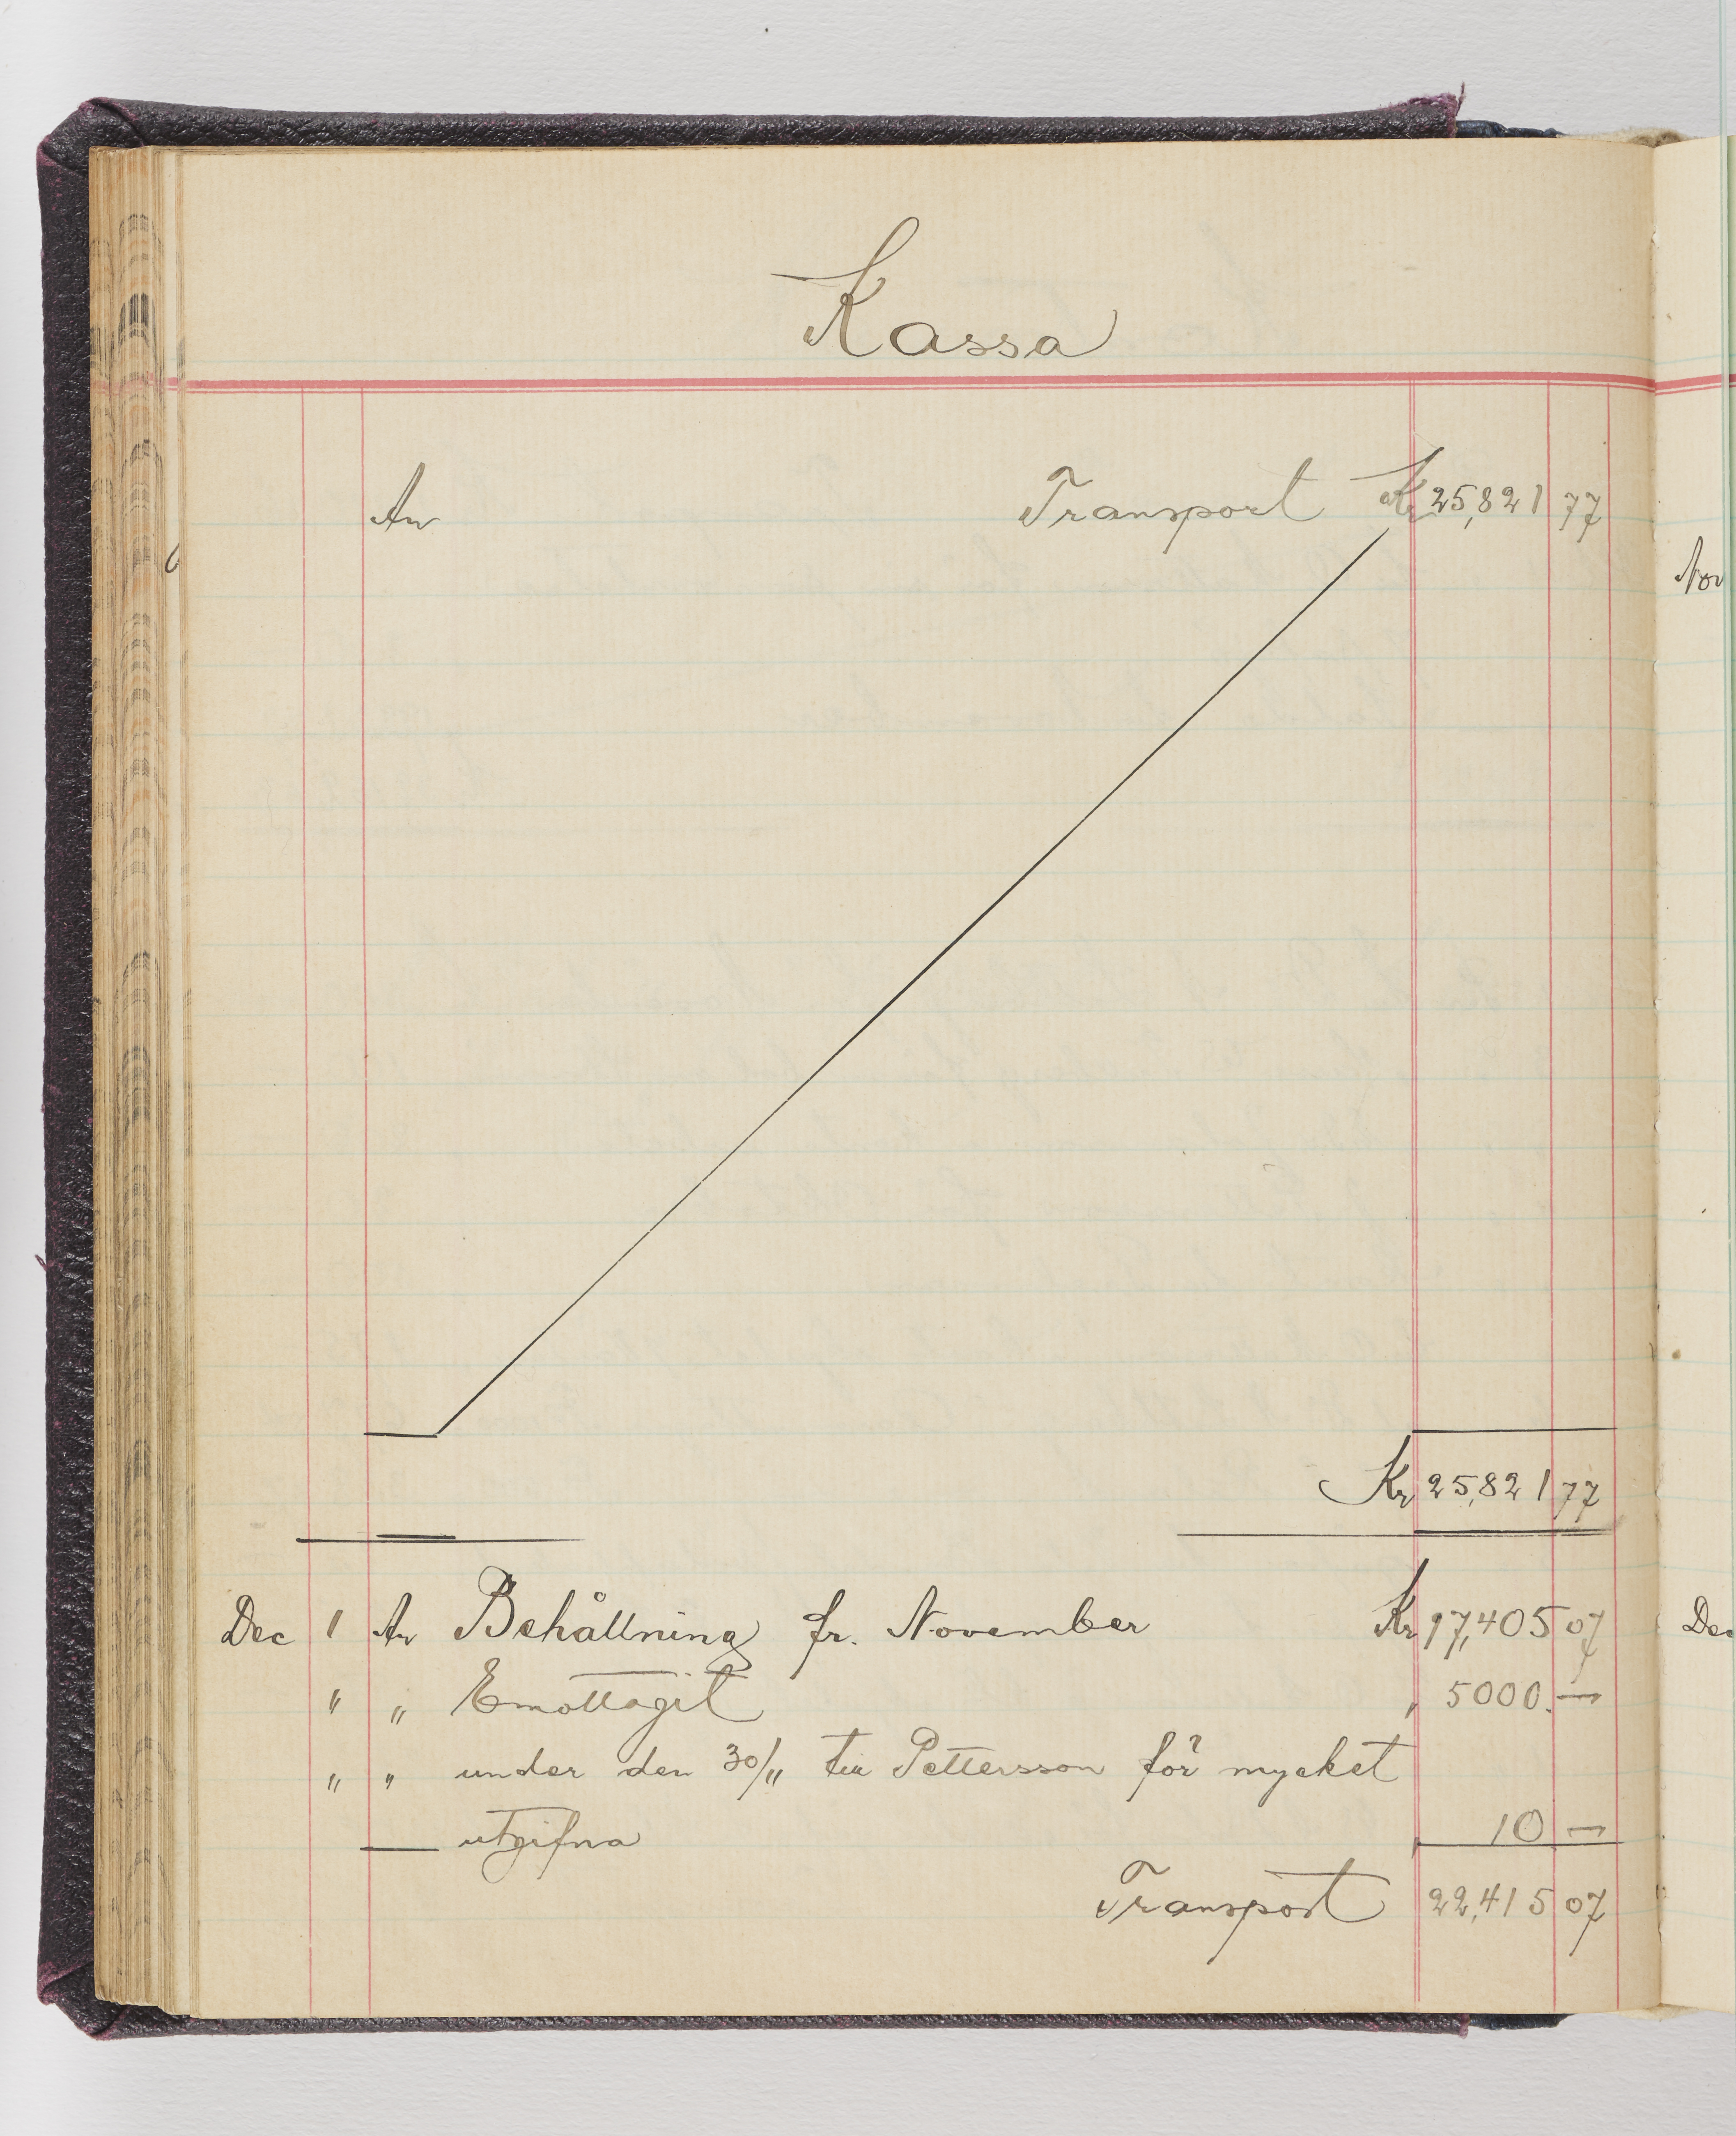 Kassa
An Transport Kr 25,821 77
Nov
Kr 25,821 77
Dec 1 An Behållning fr. November Kr 17,405 07
" " Emottagit " 5000. —
" " under den 30/11 till Pettersson för mycket
utgifna 10 —
Transport 22,415 07
Dec